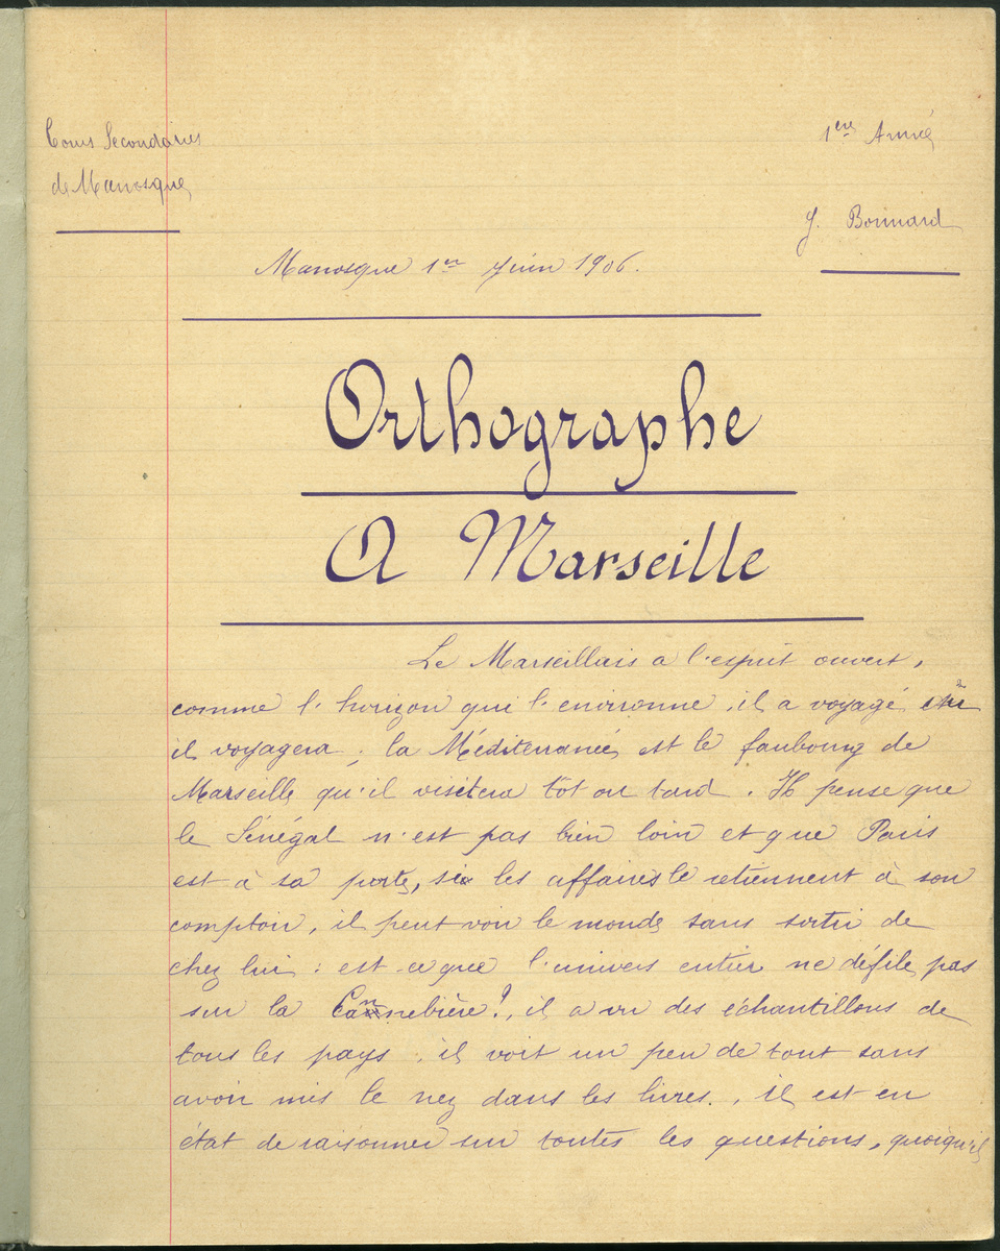 Cours Secondaires
de Manosque
1ère Année
J. Bonnard
Manosque 1er Juin 1906.
Orthographe
A Marseille
Le Marseillais a l'esprit ouvert,
comme l'horizon qui l'environne, il a voyagé
il voyagera ; la Méditerranée, est le faubourg de
Marseille qu'il visitera tôt ou tard. Il pense que
le Sénégal n'est pas bien loin et que Paris
est à sa porte, si les affaires le retiennent à son
comptoir, il peut voir le monde sans sortir de
chez lui : est-ce que l'univers entier ne défile pas
sur la Cannebière?, il a vu des échantillons de
tous les pays ; il voit un peu de tout sans
avoir mis le nez dans les livres., il est en
état de raisonner sur toutes les questions, quoiqu'il